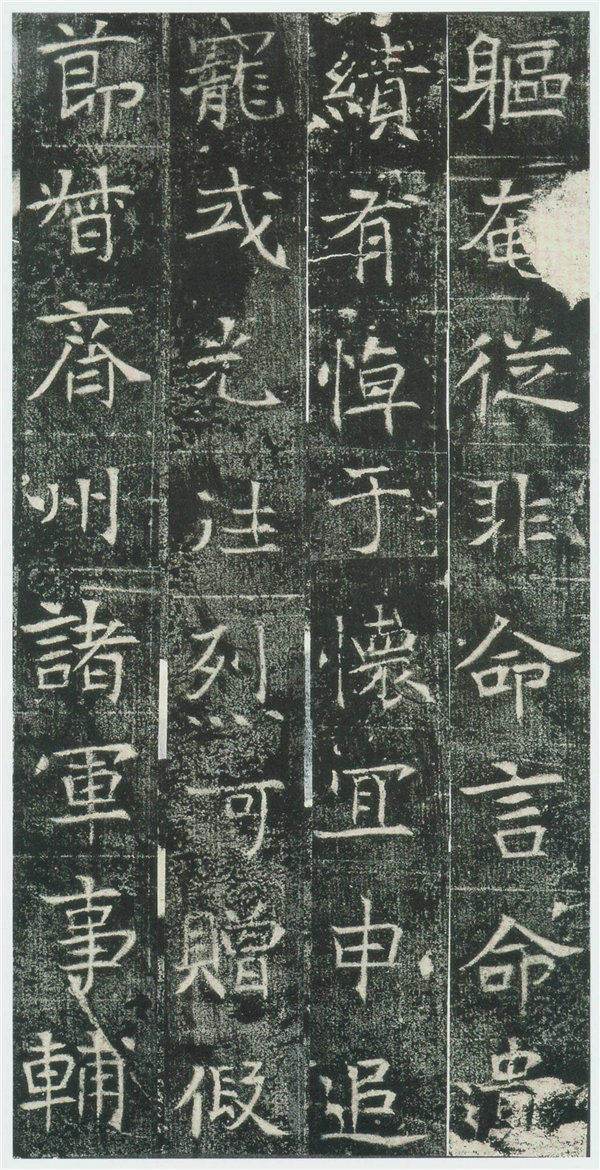 軀奄從非命言命遺
績有悼于懷宜申追
寵式光往烈可贈假
節督齊州諸軍事輔